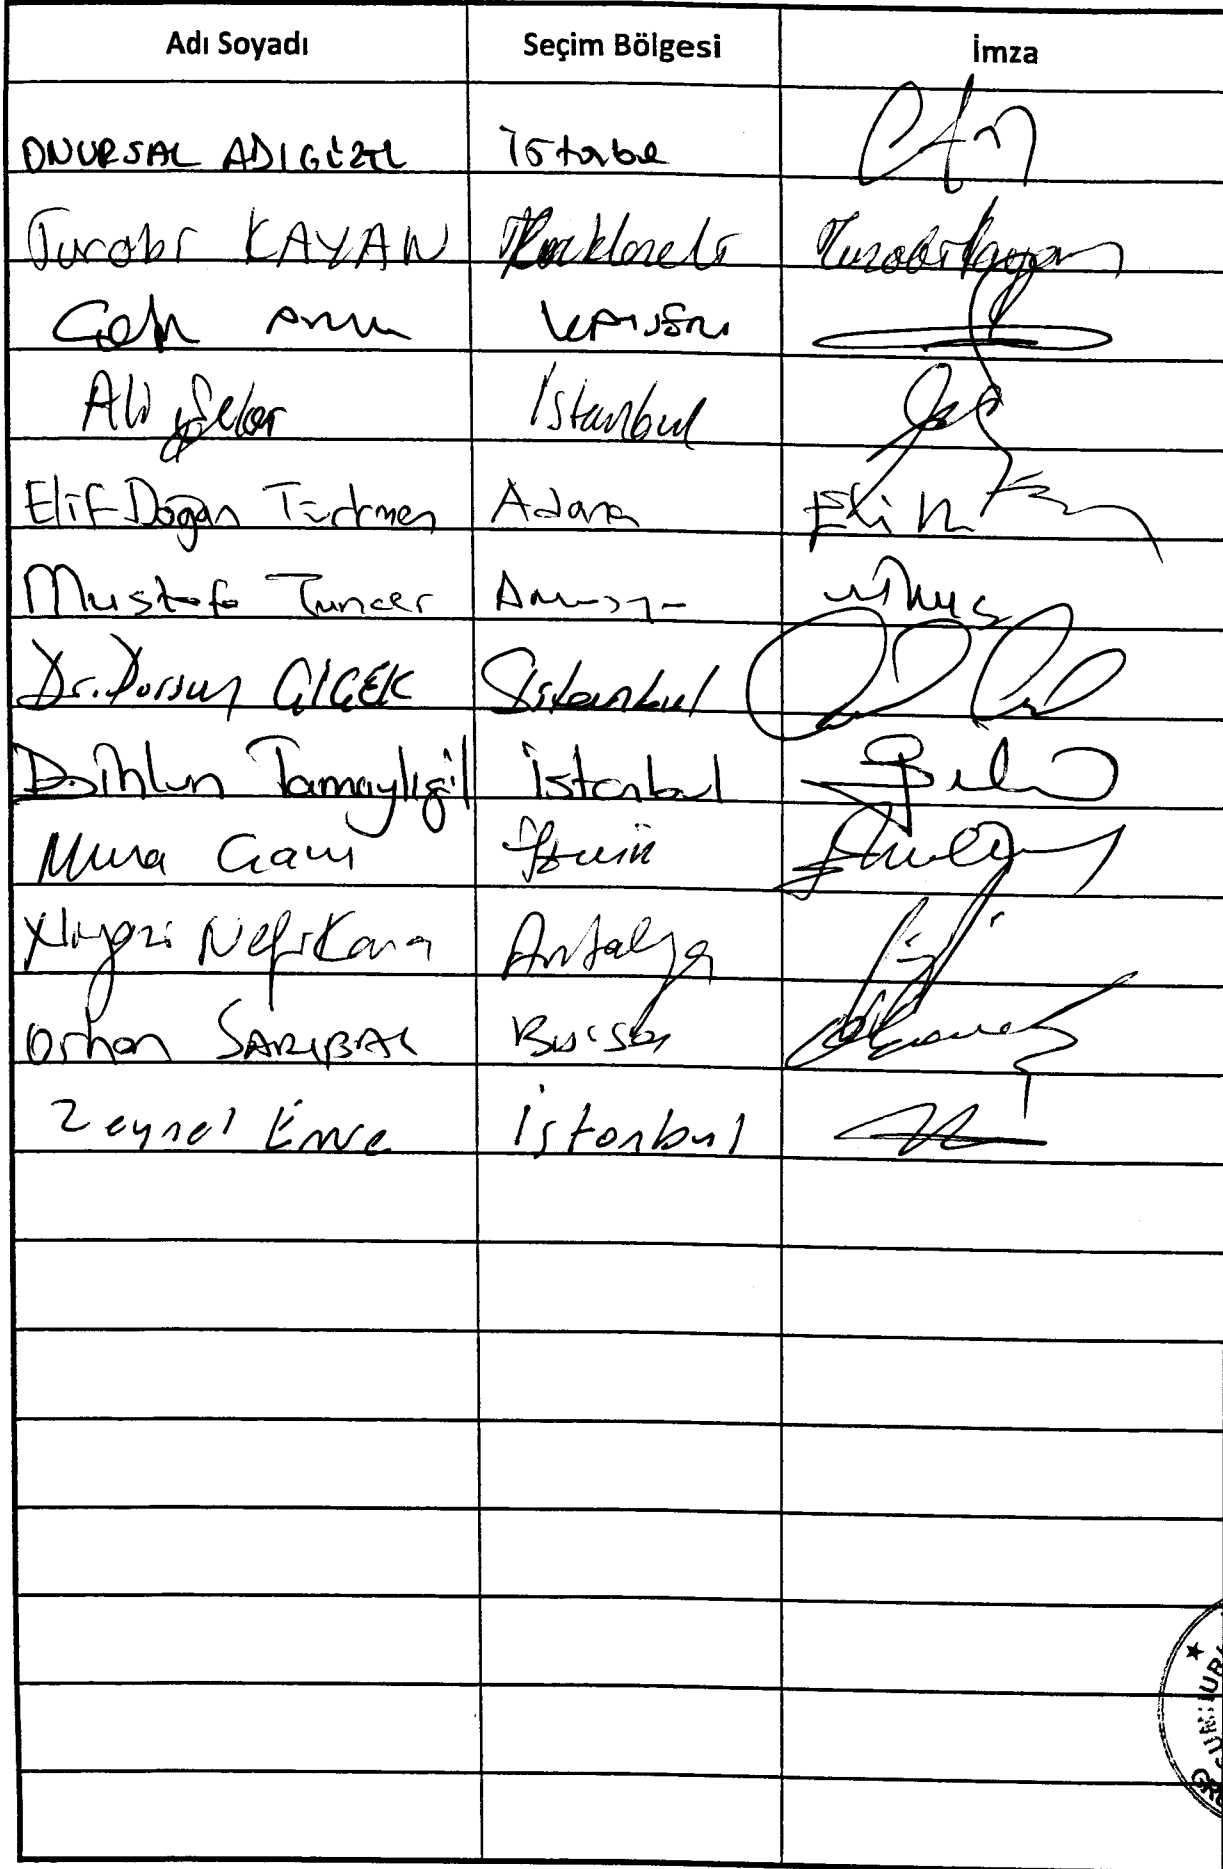 Adı Soyadı Seçim Bölgesi İmza
ONURSAL ADIGÜZEL İstanbul
Turabi KAYAN Kırklareli Turabi Kayan
Çetin Arık KAYSERİ
Ali Şeker İstanbul
Elif Doğan Türkmen Adana Elif
Mustafa Tuncer Amasya
Dr. Dursun ÇİÇEK İstanbul
D. Bihlun Tamaylıgil İstanbul
Musa Çam İzmir
Niyazi Nefi Kara Antalya
Orhan SARIBAL Bursa
Zeynel Emre İstanbul